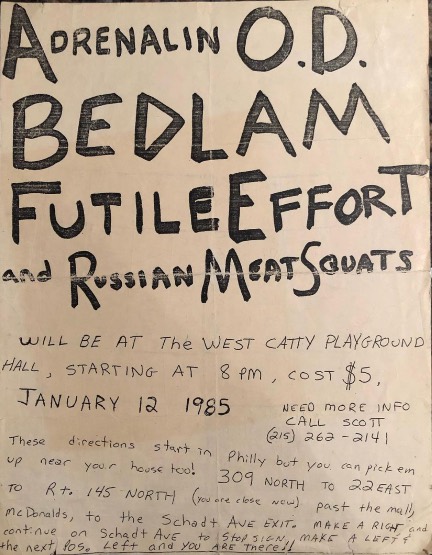 ADRENALIN O.D.
BEDLAM
FUTILE EFFORT
and RUSSIAN MEATSQUATS
WILL BE AT The WEST CATTY PLAYGROUND
HALL, STARTING AT 8 PM, COST $5,
JANUARY 12 1985
NEED MORE INFO
CALL SCOTT
(215) 262-2141
These directions start in Philly but you can pick em
up near your house too! 309 NORTH TO 22 EAST
TO Rt. 145 NORTH (you are close now) past the mall,
McDonalds, to the Schadt AVE EXIT. MAKE A RIGHT and
continue on Schadt AVE to STOP SIGN, MAKE A LEFT &
the next Pos. Left and YOU ARE THERE!!